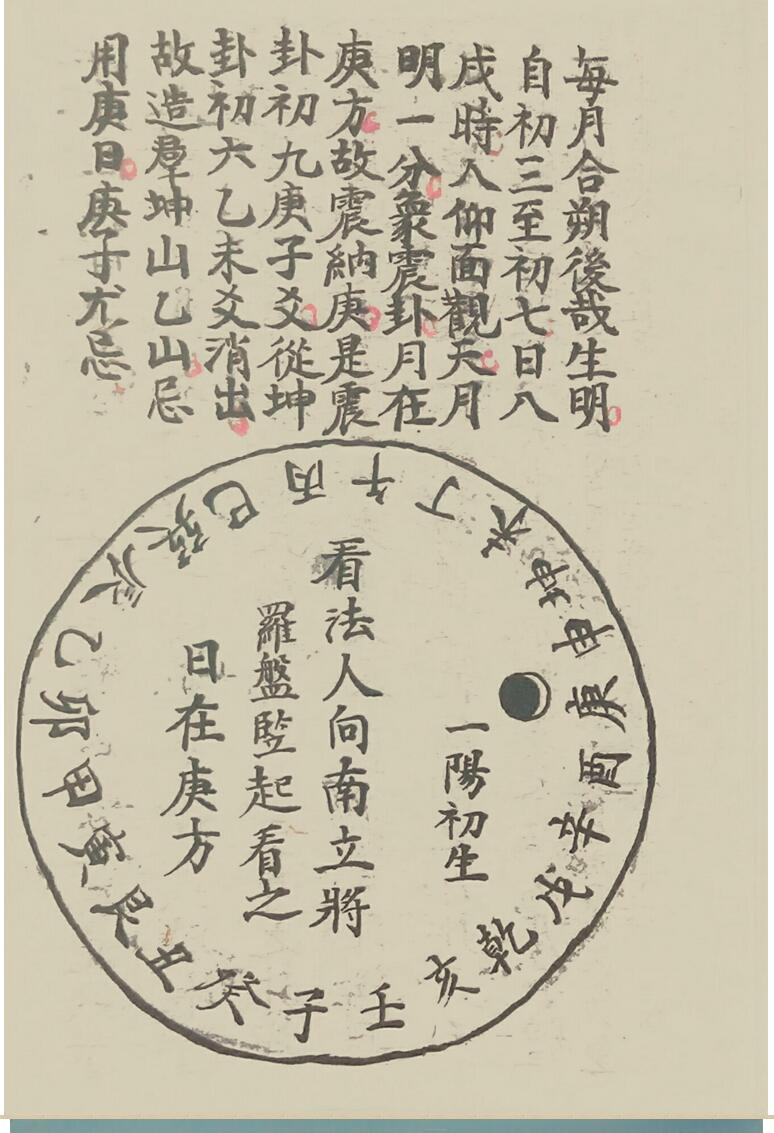 每月合朔後哉生明
自初三至初七日八
戌時人仰面觀天月
明一分象震卦月在
庚方故震納庚是震
卦初九庚子爻從坤
卦初六乙未爻消出
故造葬坤山乙山忌
用庚日庚子尤忌
午丁未坤申庚酉辛戌乾亥壬子癸丑艮寅甲卯乙辰巽巳丙
一陽初生
看法人向南立將
羅盤竪起看之
日在庚方